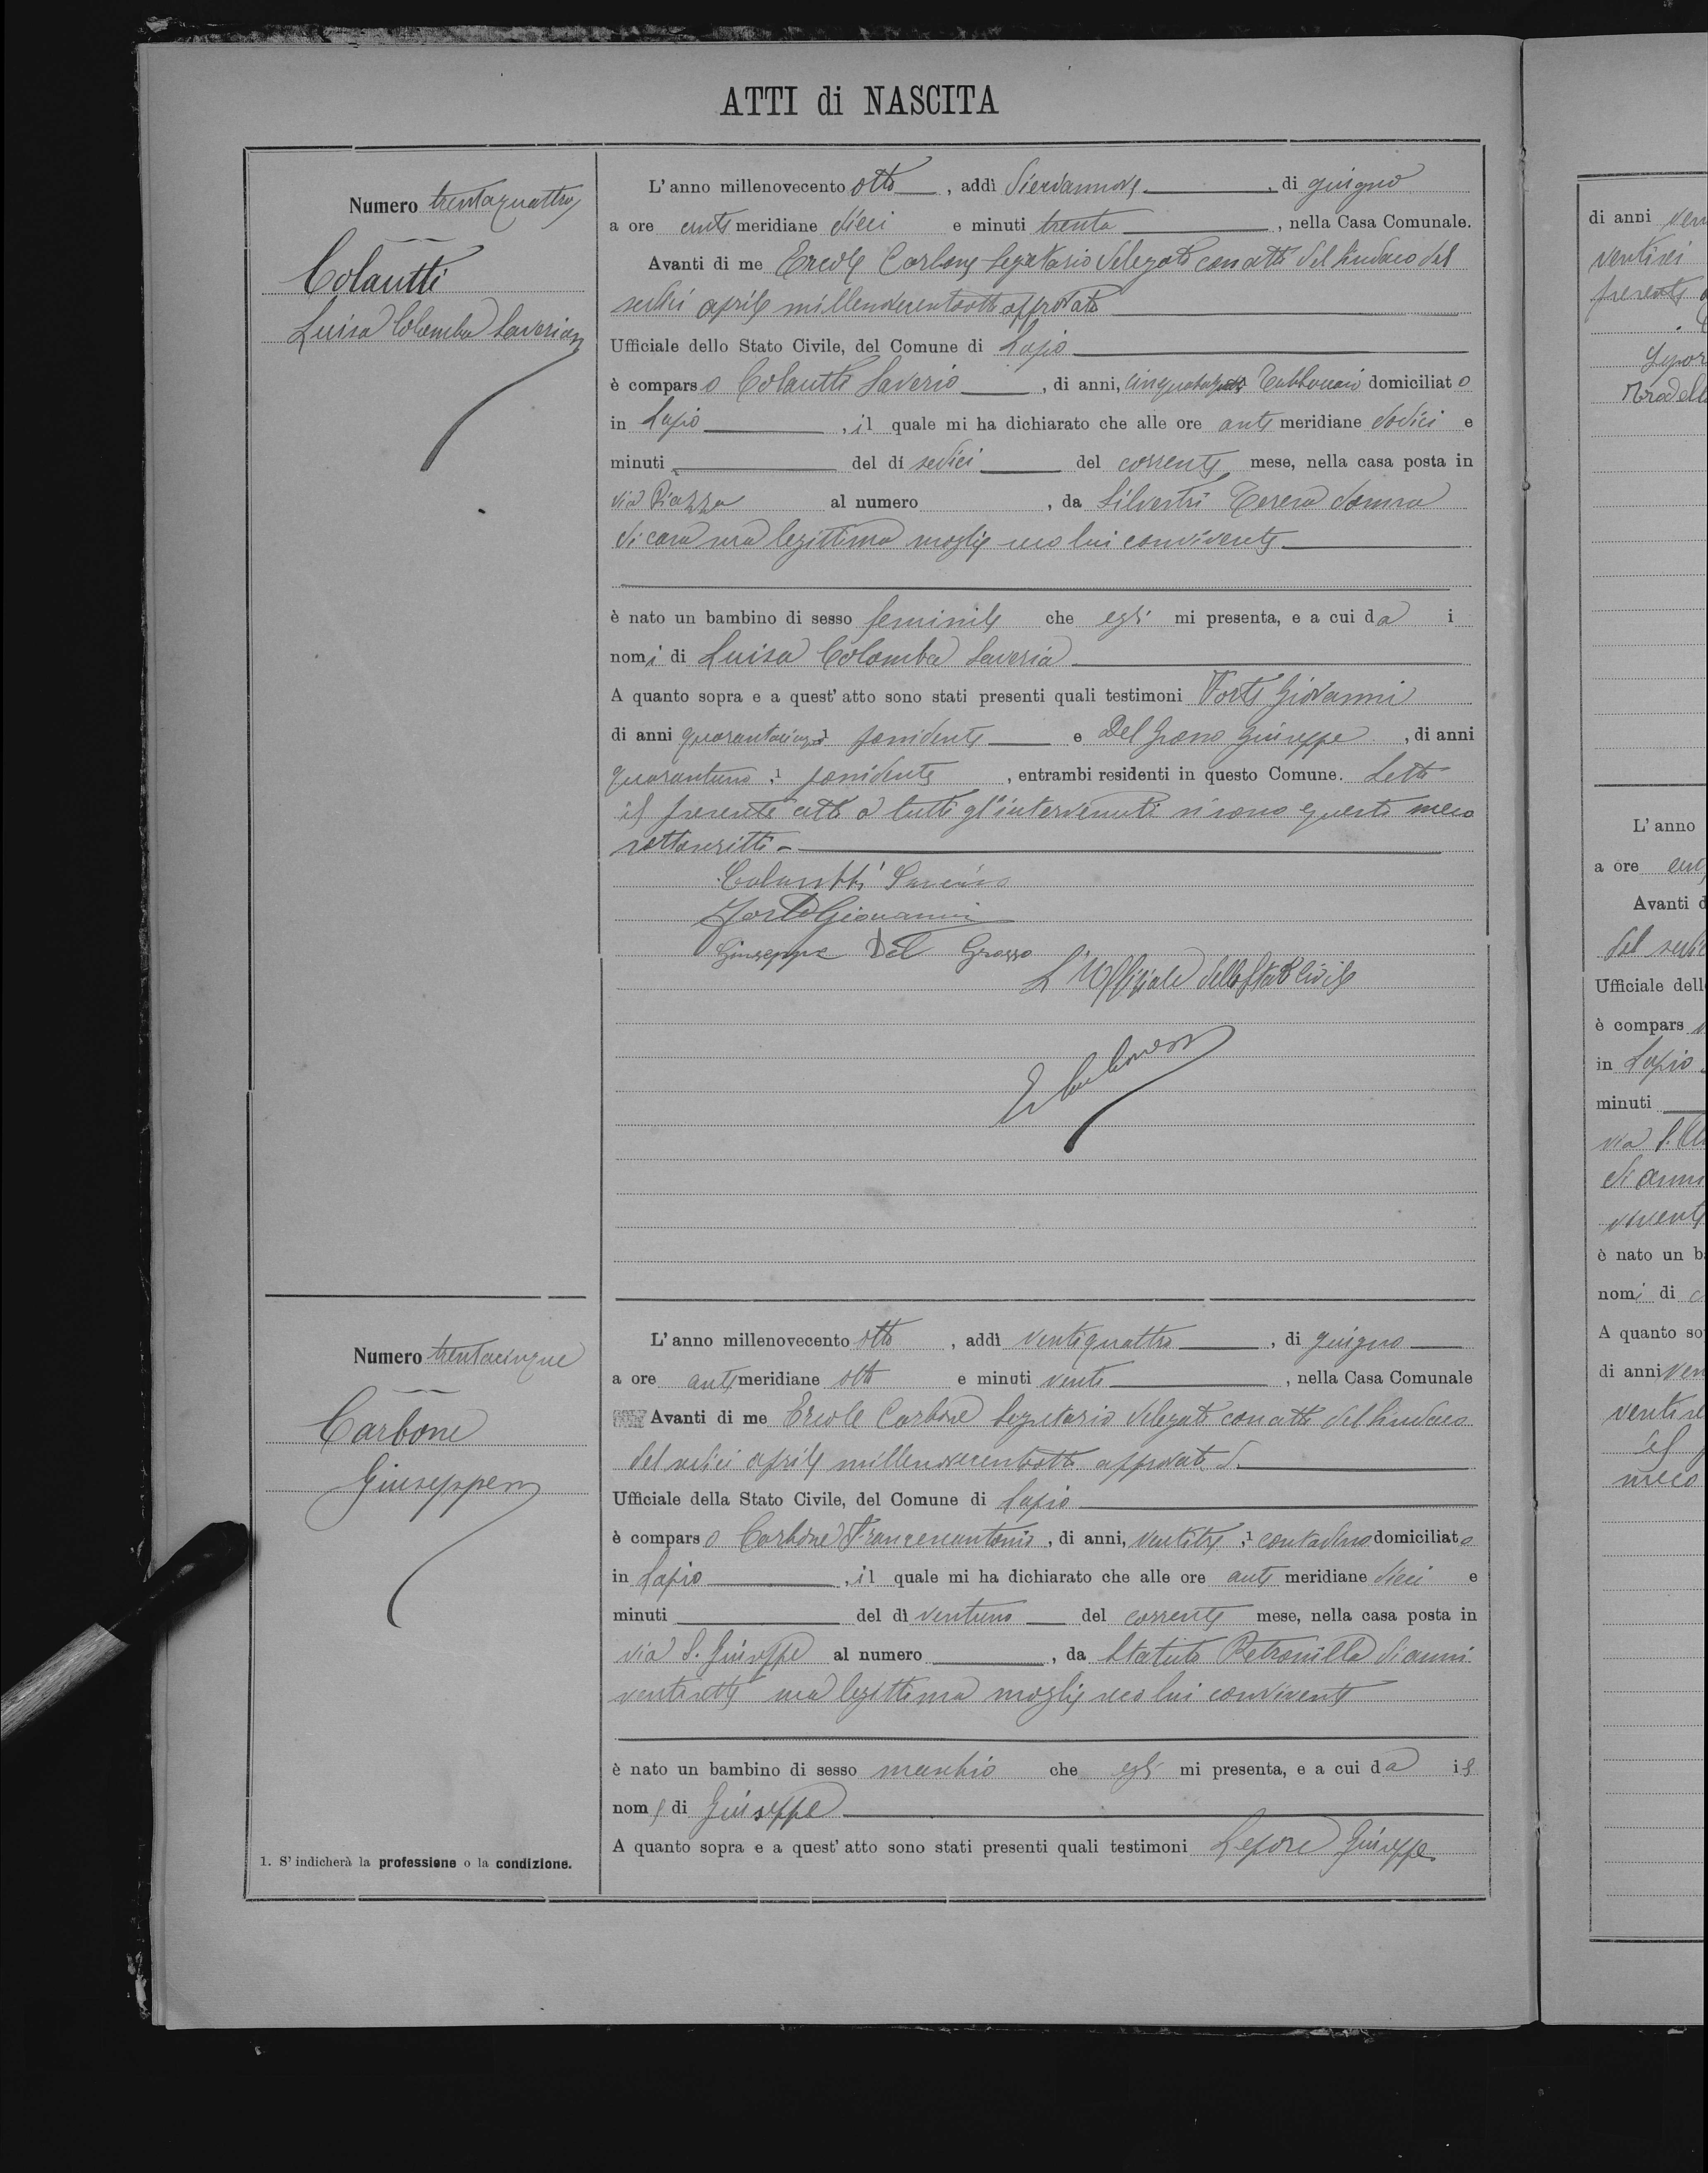 ATTI di NASCITA
Numero trentaquattro
Colautti
Luisa Colomba Saveria
L'anno millenovecento otto, addì diciannove, di giugno
a ore anti meridiane dieci e minuti trenta, nella Casa Comunale.
Avanti di me Ercole Carbone Segretario delegato con atto del Sindaco del
sedici aprile millenovecentootto approvato
Ufficiale dello Stato Civile, del Comune di Lapio
è comparso Colautti Saverio, di anni, domiciliato
in Lapio, il quale mi ha dichiarato che alle ore ante meridiane dodici e
minuti del dì sedici del corrente mese, nella casa posta in
via Piazza al numero, da Silvestri Teresa donna
di casa sua legittima moglie seco lui convivente
è nato un bambino di sesso feminile che egli mi presenta, e a cui da i
nomi di Luisa Colomba Saveria
A quanto sopra e a quest'atto sono stati presenti quali testimoni Forte Giovanni
di anni quarantacinque possidente e Del Grosso Giuseppe, di anni
quarantuno, 1 possidente, entrambi residenti in questo Comune. Letto
il presente atto a tutti gl'intervenuti si sono questi meco
sottoscritti -
Colautti Saverio
Forte Giovanni
Giuseppe Del Grosso
L'Uffiziale dello Stato Civile
E Carbone
Numero trentacinque
Carbone
Giuseppe
L'anno millenovecento otto, addì ventiquattro, di giugno
a ore anti meridiane otto e minuti venti, nella Casa Comunale
Avanti di me Ercole Carbone Segretario delegato con atto del Sindaco
del sedici aprile millenovecentootto approvato
Ufficiale della Stato Civile, del Comune di Lapio
è comparso Carbone Francescantonio, di anni, ventitre, 1 contadino domiciliato
in Lapio, il quale mi ha dichiarato che alle ore anti meridiane dieci e
minuti del dì ventuno del corrente mese, nella casa posta in
via S. Giuseppe al numero, da Statuto Petronilla di anni
ventisette sua legittima moglie seco lui convivente
è nato un bambino di sesso maschio che egli mi presenta, e a cui da il
nome di Giuseppe
A quanto sopra e a quest'atto sono stati presenti quali testimoni Lepore Giuseppe
1. S'indicherà la professione o la condizione.
di anni
ventisei
presente
L'anno
a ore
Avanti
del
Ufficiale dell
è compars
in Lapio
minuti
via S.
di anni
vivente
è nato un b
nomi di
A quanto so
di anni ven
ventise
il
meco